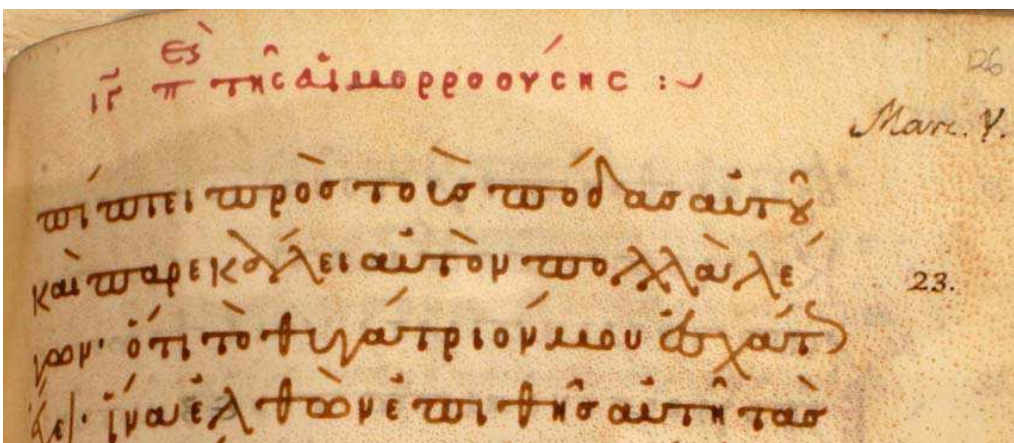 26
ιγ π τῆς αἱμορροούσης :~
Marc. V.
πίπτει πρὸς τοὺς πόδας αὐτοῦ
καὶ παρεκάλει αὐτὸν πολλὰ λέ
23.
γων· ὅτι τὸ θυγάτριόν μου ἐσχάτως
ἔχει· ἵνα ἐλθὼν ἐπιθῆς αὐτῆ τὰς